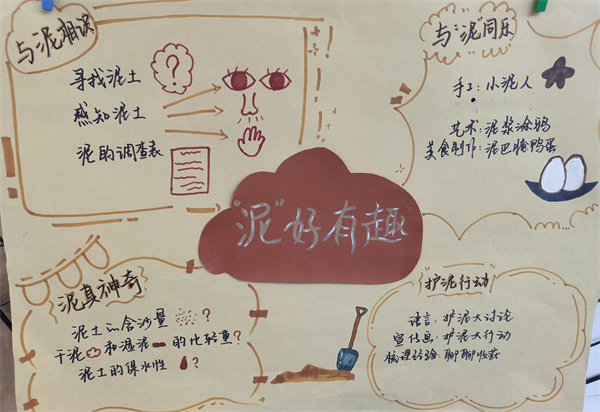 与泥相识
寻找泥土
?
感知泥土
泥的调查表
与"泥"同乐
手工:小泥人
艺术:泥浆涂鸦
美食制作:泥巴腌鸭蛋
"泥"好有趣
泥真神奇
泥土的含沙量?
干泥和湿泥的比轻重?
泥土的保水性?
"护泥行动"
语言:护泥大讨论
宣传画:护泥大行动
梳理经验:聊聊收获